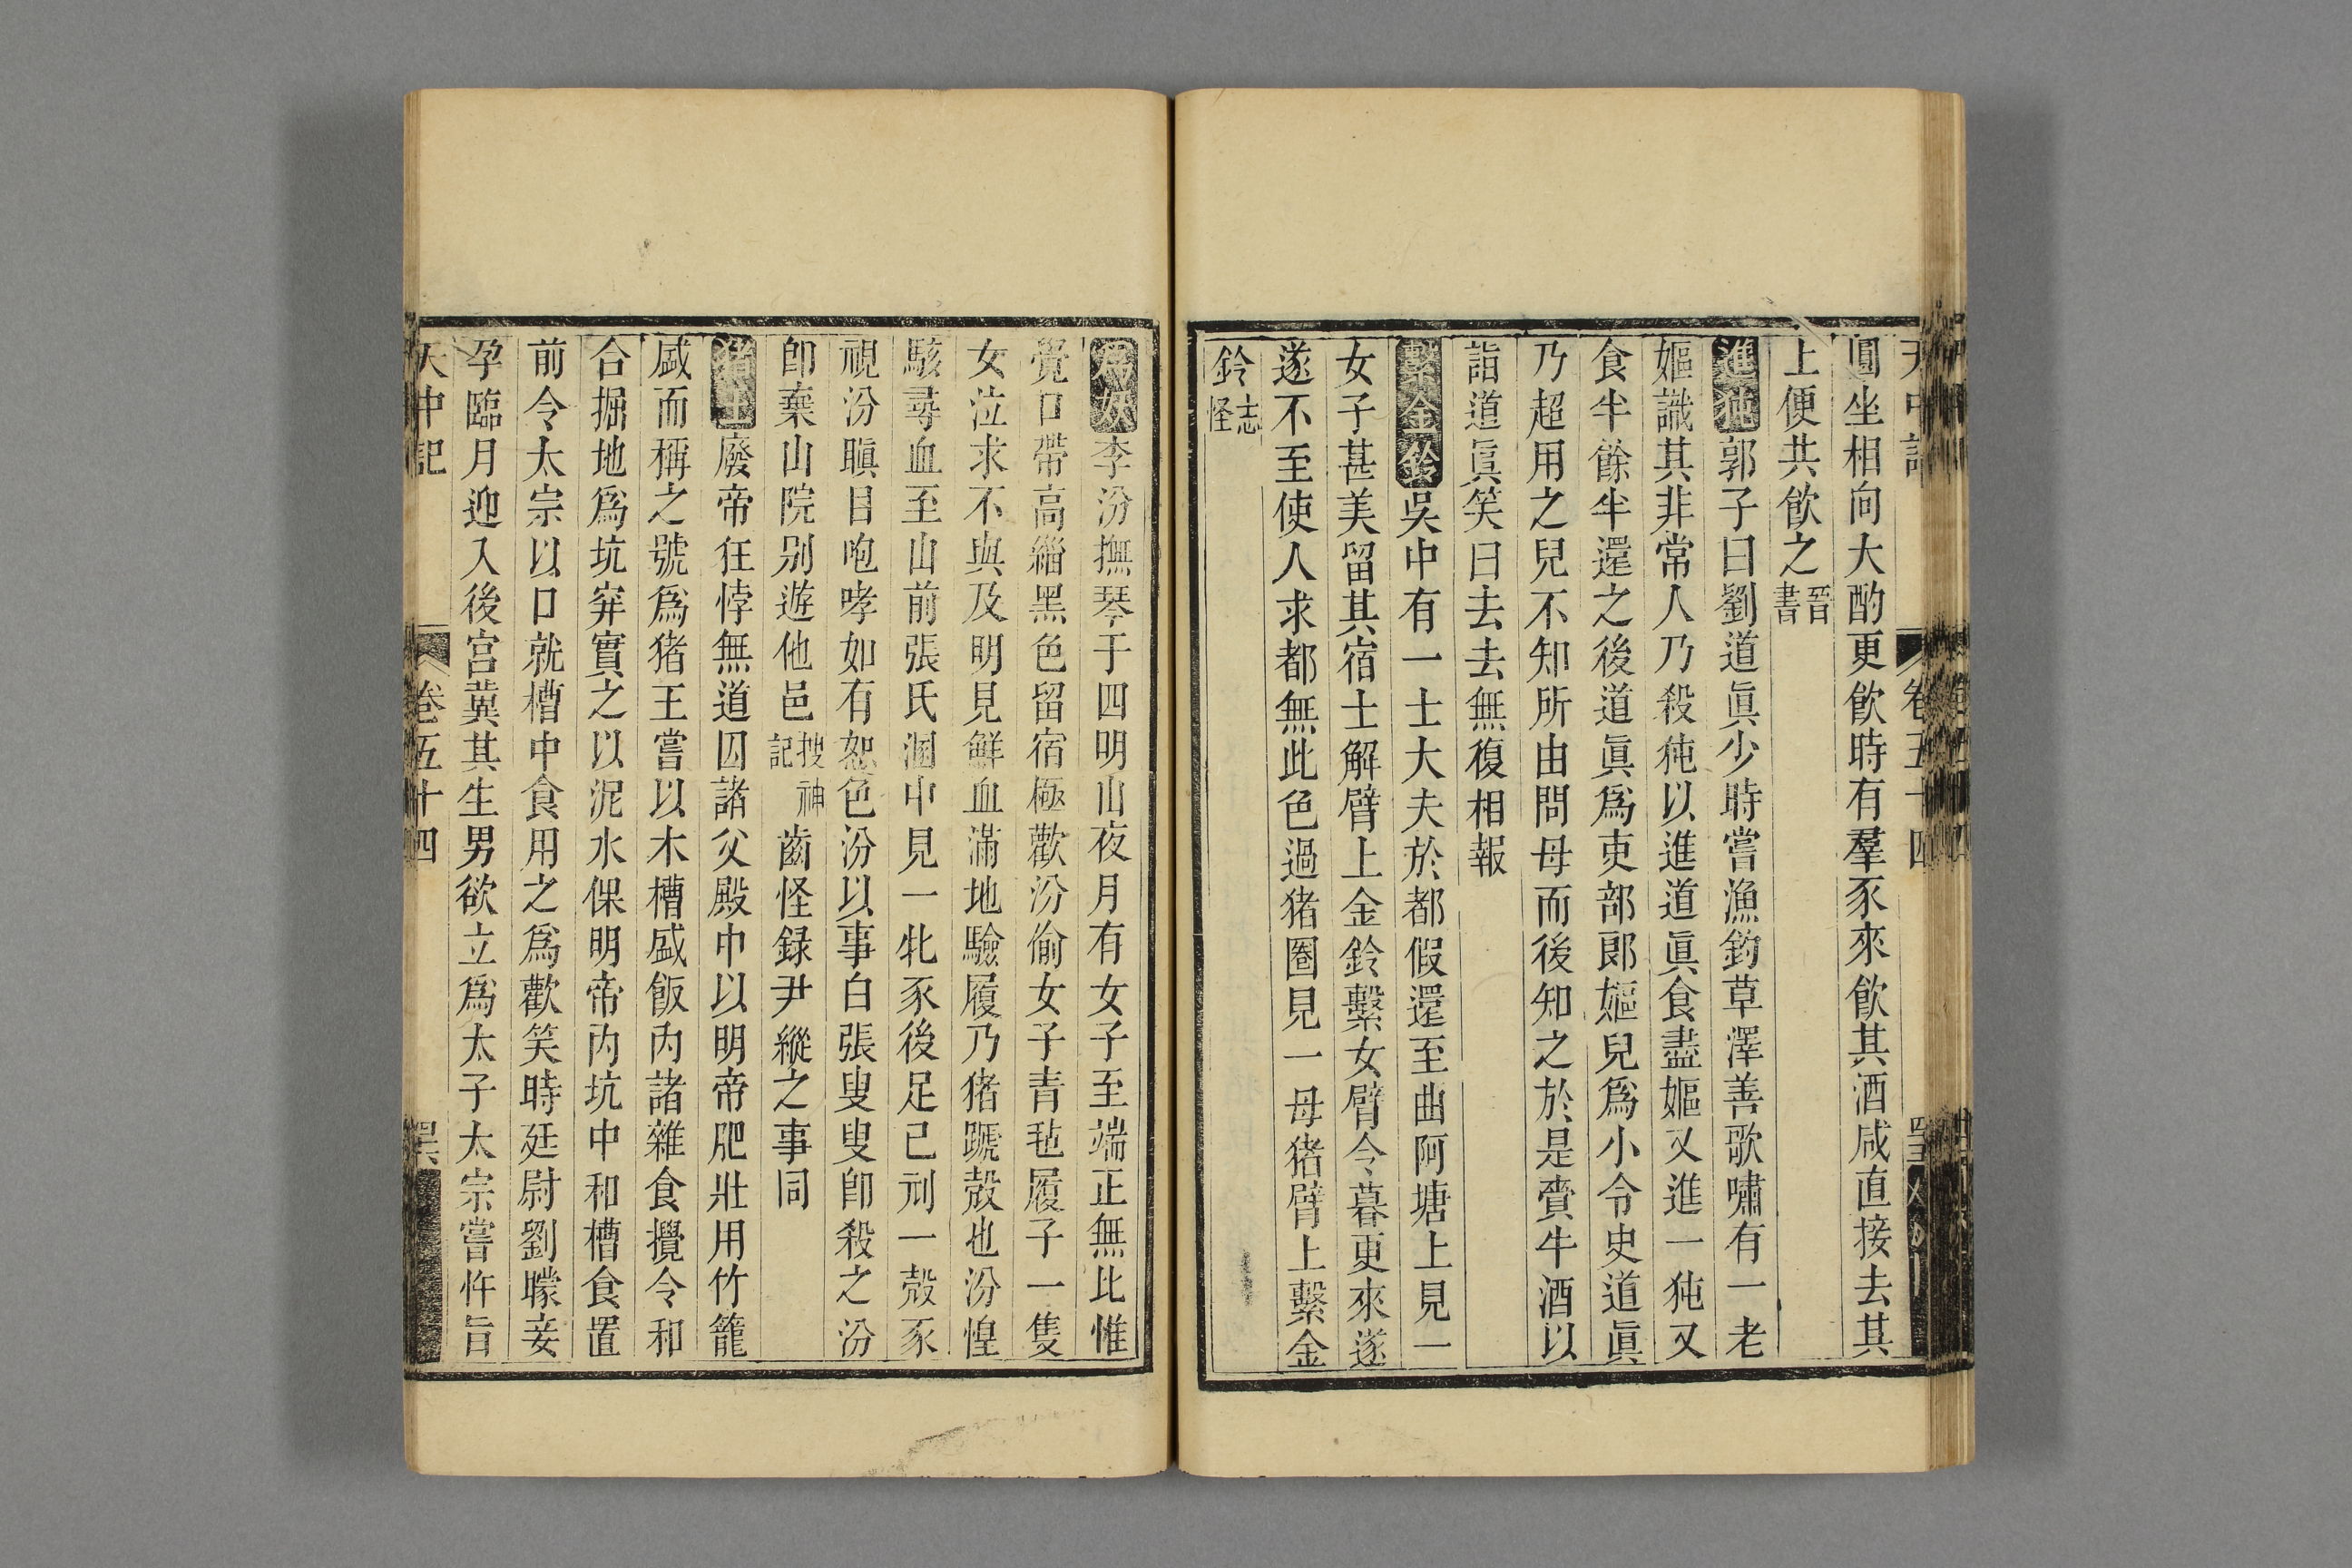 天中記 卷五十四
圓坐相向大酌更飲時有羣豕來飲其酒咸直接去其
上便共飲之晉書
進㹠郭子曰劉道眞少時嘗漁釣草澤善歌嘯有一老
嫗識其非常人乃殺㹠以進道眞食盡嫗又進一㹠又
食半餘半還之後道眞爲吏部郎嫗兒爲小令史道眞
乃超用之兒不知所由問母而後知之於是賫牛酒以
詣道眞笑曰去去無復相報
繫金鈴吳中有一士大夫於都假還至曲阿塘上見一
女子甚美留其宿士解臂上金鈴繫女臂令暮更來遂
遂不至使人求都無此色過猪圈見一母猪臂上繫金
鈴志怪
爲妖李汾撫琴于四明山夜月有女子至端正無比惟
覺口帶高緇黑色留宿極歡汾偷女子青毡履子一隻
女泣求不與及明見鮮血滿地驗履乃猪蹏殼也汾惶
駭尋血至山前張氏溷中見一牝豕後足已刓一殼豕
視汾瞋目咆哮如有恕色汾以事白張叟叟卽殺之汾
卽棄山院别遊他邑搜神記齒怪録尹縱之事同
猪王廢帝狂悖無道囚諸父殿中以明帝肥壯用竹籠
盛而稱之號爲猪王嘗以木槽盛飯内諸雜食攪令和
合掘地爲坑穽實之以泥水倮明帝内坑中和槽食置
前令太宗以口就槽中食用之爲歡笑時廷尉劉矇妾
孕臨月迎入後宫冀其生男欲立爲太子太宗嘗忤旨
天中記 卷五十四